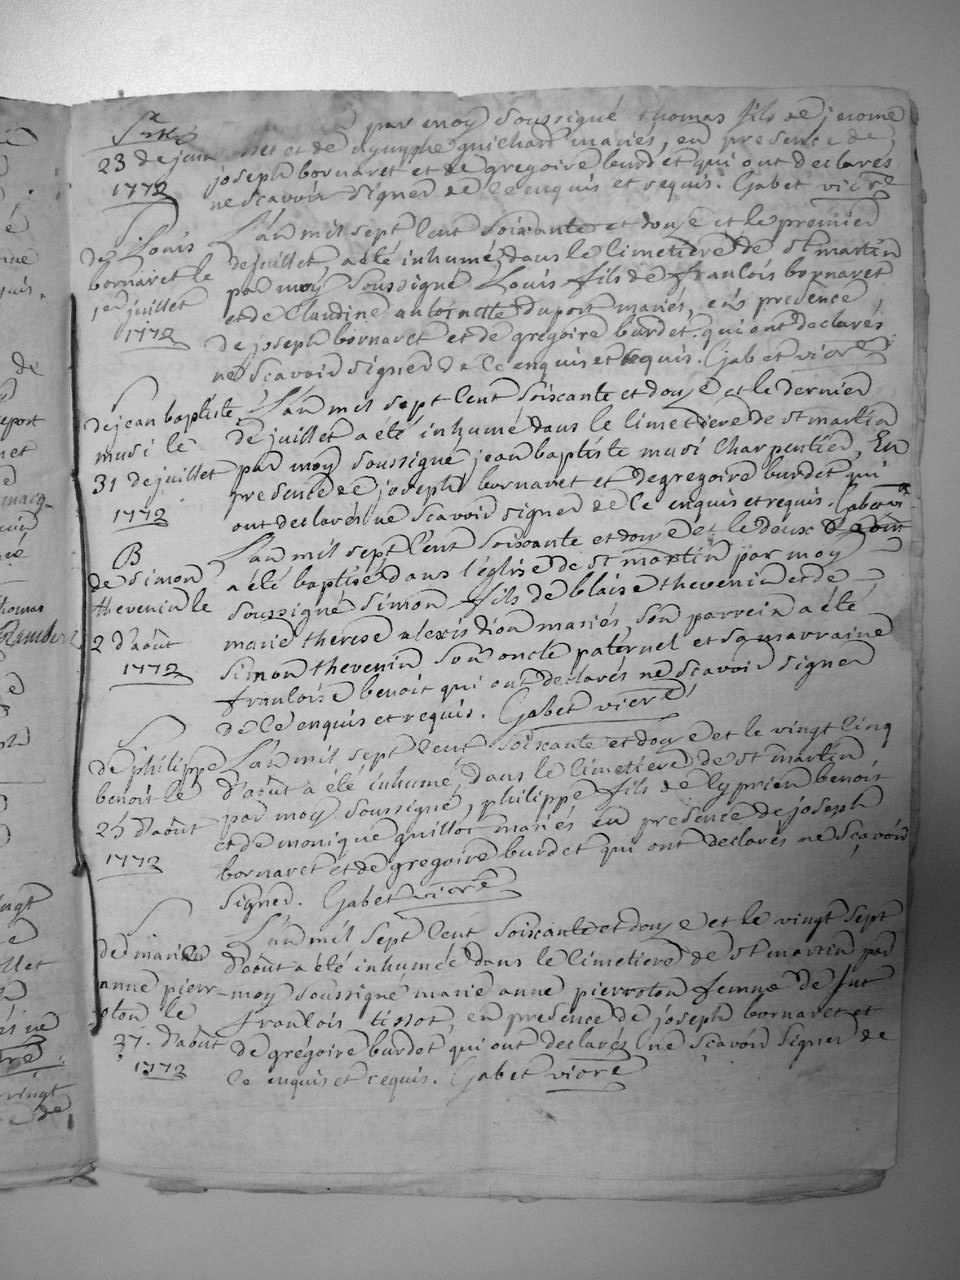 par moy soussigné thomas fils de jerome
23 de juin et de nymphe guichard mariés, en presence de
1772 joseph bornaret et de gregoire burdet qui ont declarés
ne scavoir signer de ce enquis et requis. Gabet vicre
L'an mil sept cent soixante et douze et le premier
de Louis de juillet a eté inhumé dans le cimetiere de st martin
bornaret le par moy soussigné Louis fils de francois bornaret
1er juillet et de Claudine antoinette duport mariés, en presence
1772 de joseph bornaret et de gregoire burdet qui ont declarés
ne scavoir signer de ce enquis et requis. Gabet vicre
L'an mil sept cent soixante et douze et le dernier
de jean baptiste de juillet a eté inhumé dans le cimetiere de st martin
musi le par moy soussigné jean baptiste musi charpentier, En
31 de juillet presence de joseph bornaret et de gregoire burdet qui
1772 ont declarés ne scavoir signer de ce enquis et requis. Gabet vi
B L'an mil sept cent soixante et douze et le deux
de Simon a été baptisé dans l'église de st martin par moy
thevenin le soussigné Simon fils de blaise thevenin et de
2 d'août marie therese alexis dion mariés, son parrein a été
1772 Simon thevenin son oncle paternel et sa marraine
francoise benoit qui ont declarés ne scavoir signer
de ce enquis et requis. Gabet vicre
L'an mil sept cent soixante et douze et le vingt cinq
de philippe d'août a été inhumé, dans le cimetiere de st martin
benoit le par moy soussigné, philippe fils de cyprien benoit
25 d'août et de monique guillot mariés en presence de joseph
1772 bornaret et de gregoire burdet qui ont declarés ne scavoir
signer. Gabet vicre
L'an mil sept cent soixante et douze et le vingt sept
de marie d'août a été inhumée dans le cimetiere de st martin par
anne pierr- moy soussigné marie anne pierroton femme de fut
oton le francois tissot, en presence de joseph bornaret et
27. d'août de grégoire burdet, qui ont declarés ne scavoir signer de
1772 ce enquis et requis. Gabet vicre